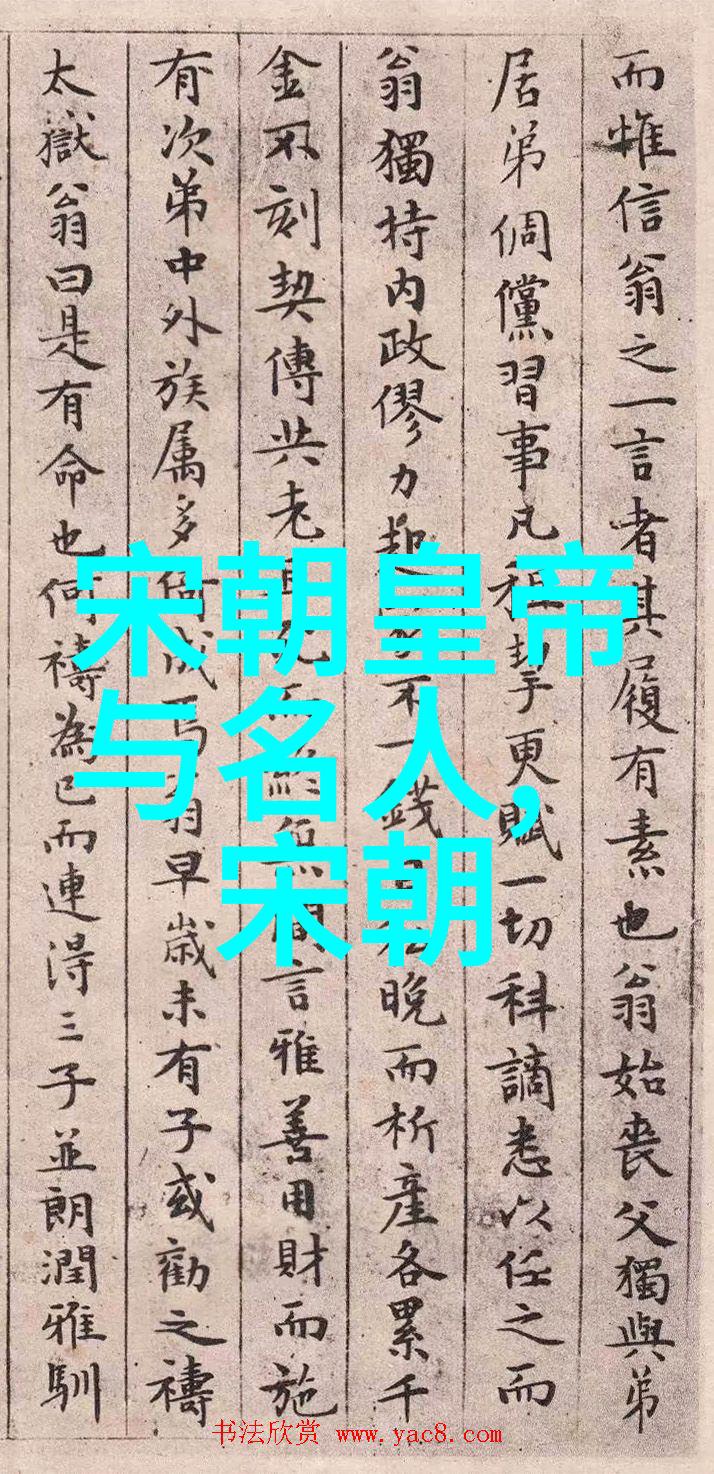 而惟信翁之一言者其履有素也翁始喪父獨與弟
居弟倜儻習事凡租挈更賦一切科謫悉以任之而
翁獨持内政僇力起不一錢晚而析產各累千
金不刻契傳共老且死而終無間言雅善用財而施
有次弟中外族属多倚成焉翁早歲未有子或勸之禱
太嶽翁曰是有命也何禱為已而連得三子並朗潤雅馴
宋朝皇帝
与名人,
宋朝
书法欣赏 www.yac8.com